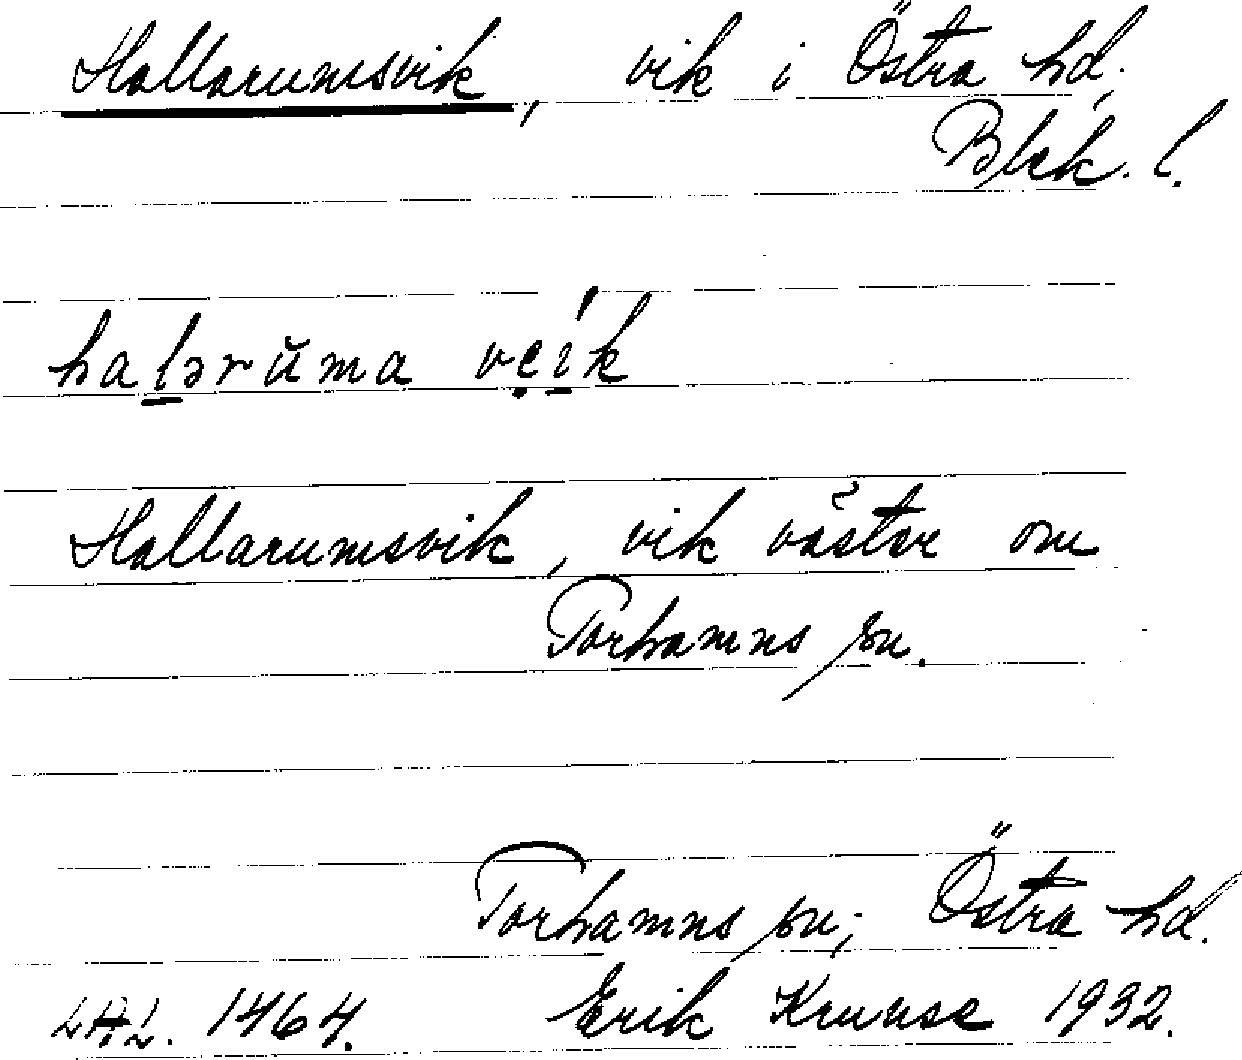 Hallarumsvik, vik i Östra hd.
Blek. l.
halərŭma veik
Hallarumsvik, vik väster om
Torhamns sn.
Torhamns sn; Östra hd.
LAL. 1464. Erik Kruuse 1932.